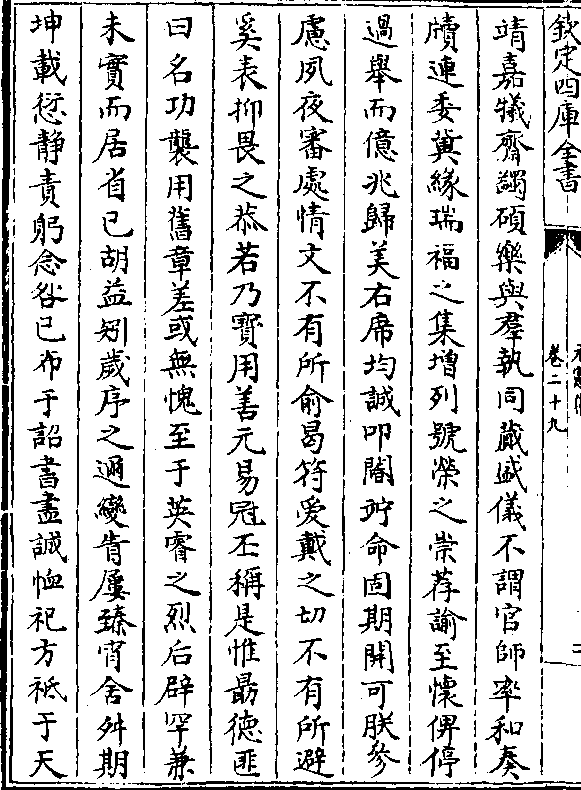 欽定四庫全書
卷二十九
靖嘉犧齊蠲碩樂與羣執同蕆盛儀不謂官師率和奏
牘連委冀緣瑞福之集増列號榮之崇荐諭至懐俾停
過舉而億兆歸美右席均誠叩閽竚命固期開可朕參
慮夙夜審處情文不有所俞曷符爱戴之切不有所避
奚表抑畏之恭若乃寳用善元易冠丕稱是惟最德匪
曰名功襲用舊章差或無愧至于英睿之烈后辟罕兼
未實而居省已胡益矧歲序之邇變眚屢臻宵舍舛期
坤載愆静責躬念咎已布于詔書盡誠恤祀方祗于天